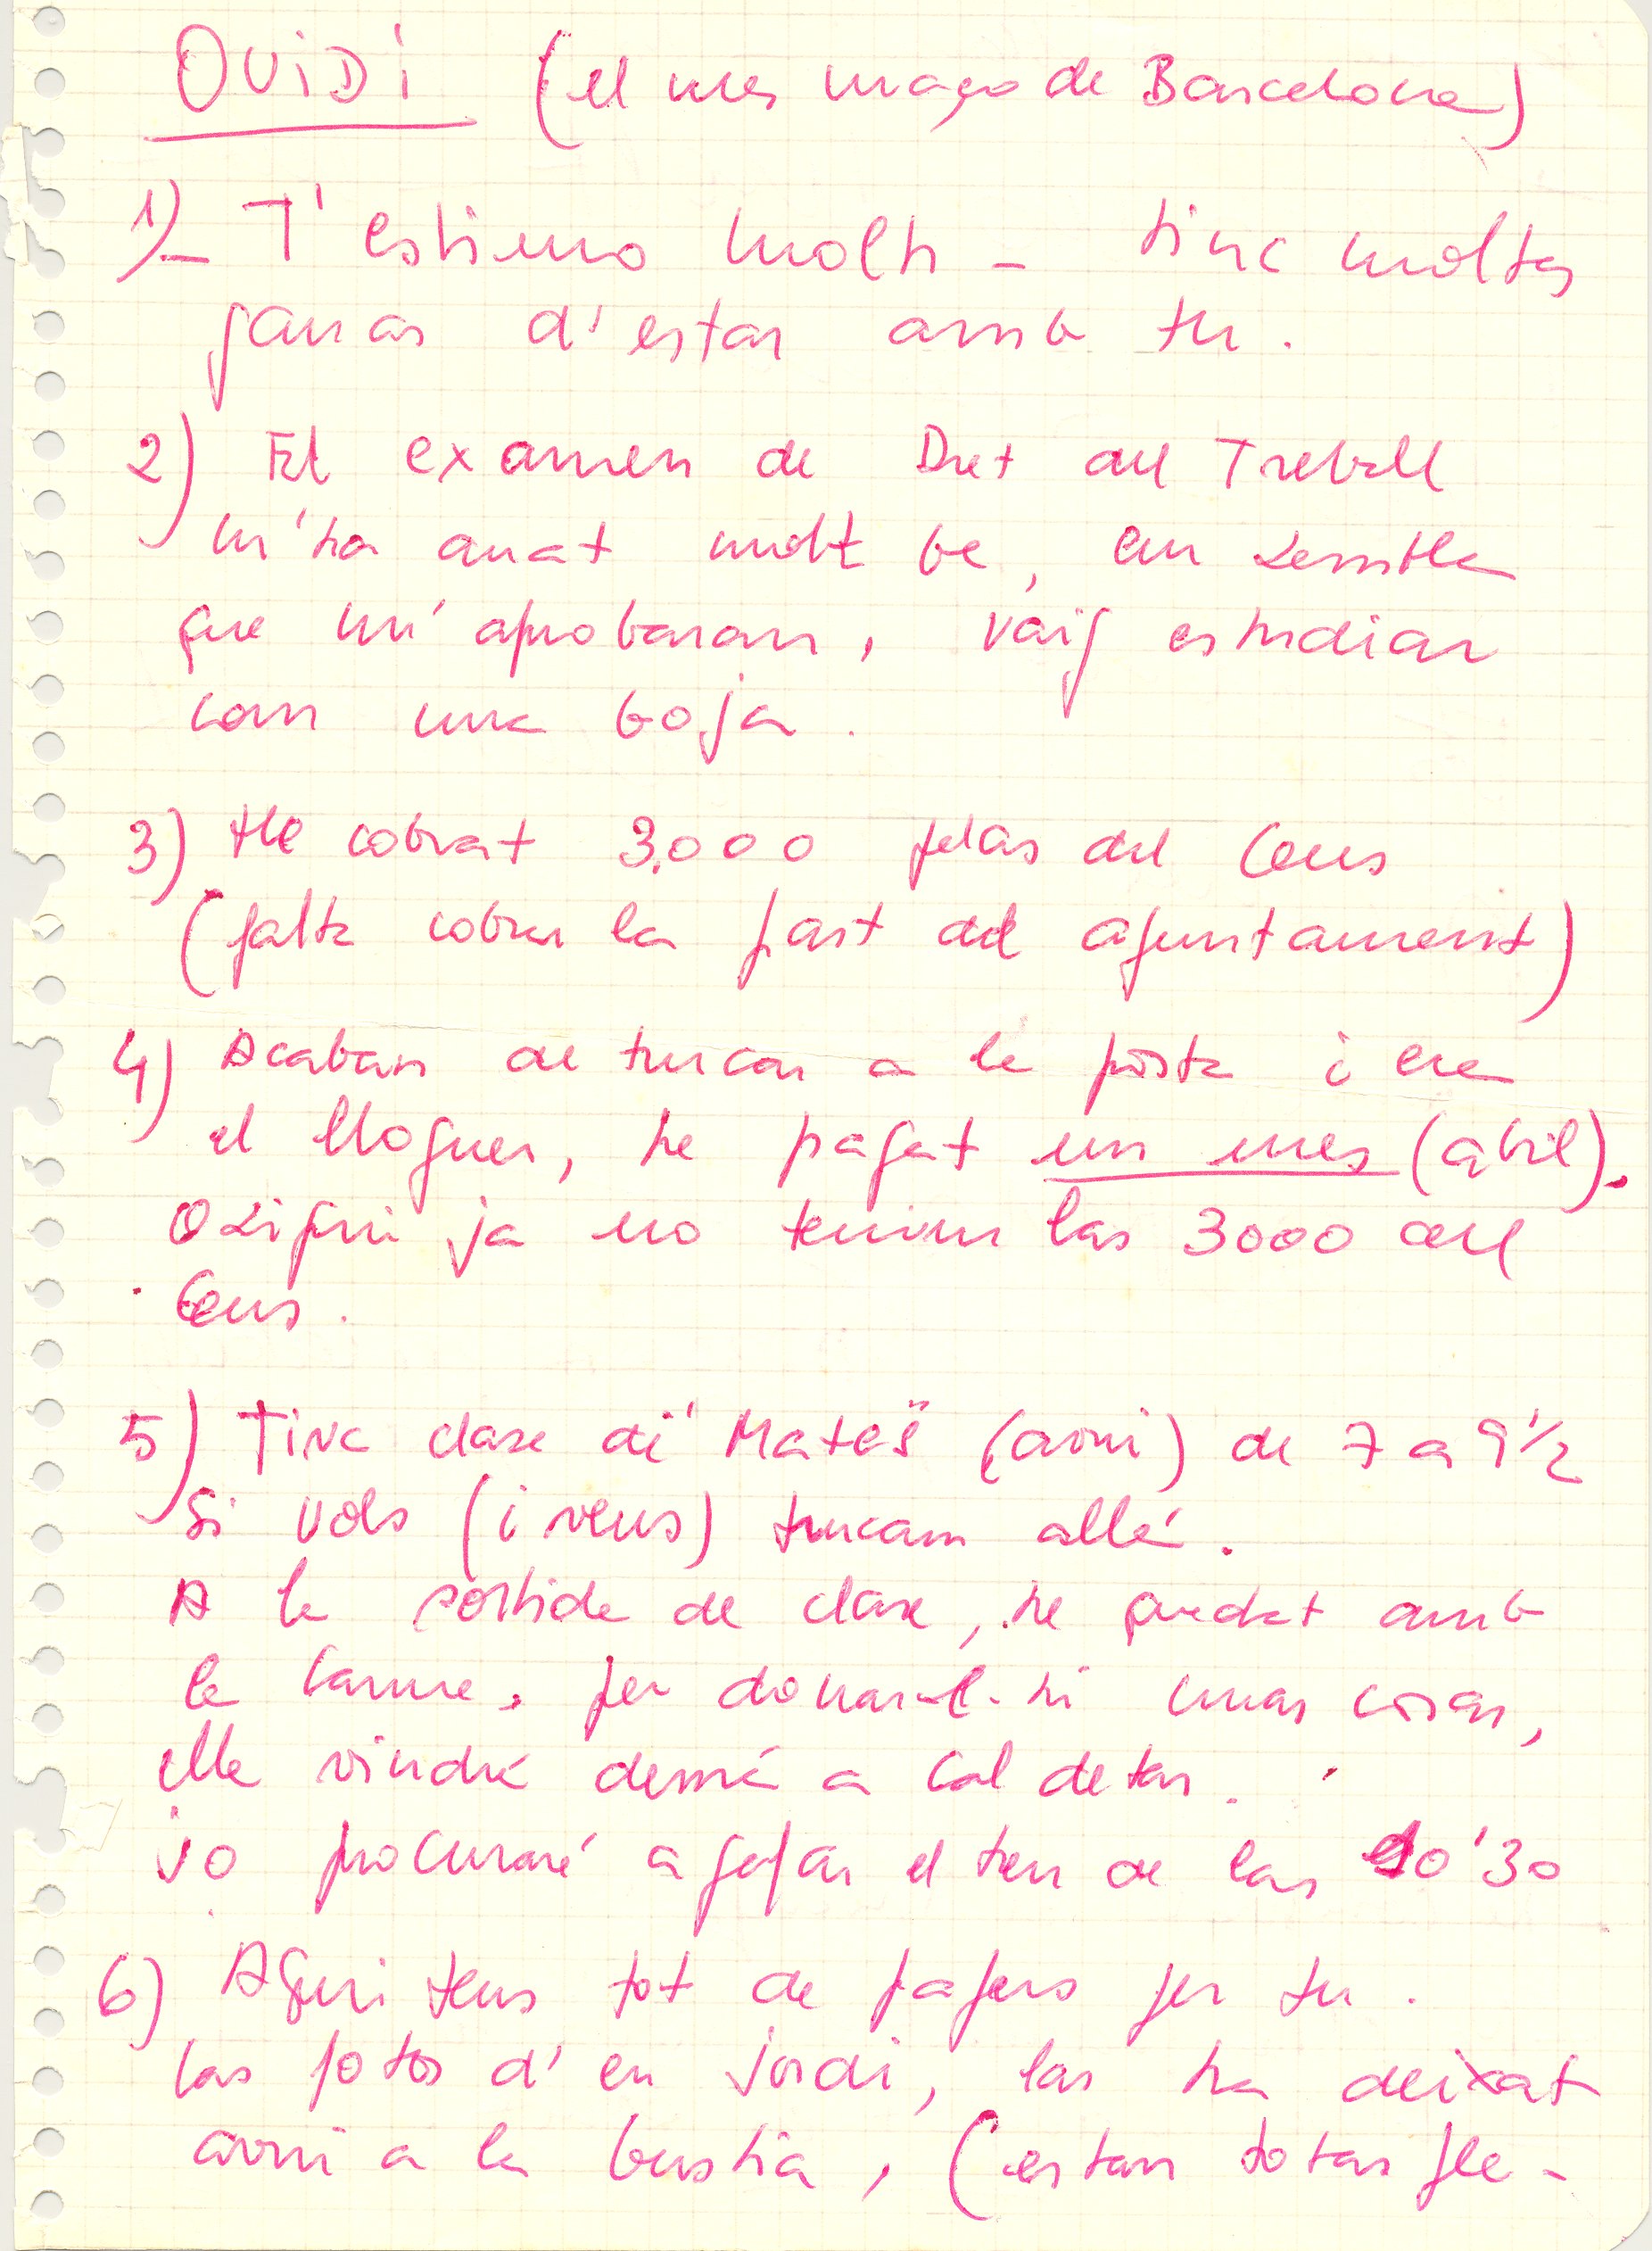 OVIDI (el mes maço de Barcelona)
1)- T'estimo molt - tinc moltas
ganas d'estar amb tu.
2) El examen de Dret del Treball
m'ha anat molt be, em sembla
que m'aprobaran, vaig estudiar
com una boja.
3) He cobrat 3.000 pelas del Cens
(falta cobrar la part del ajuntament)
4) Acaban de trucar a la porta i era
el lloguer, he pagat un mes (abril).
O sigui ja no tenim las 3000 del
Cens.
5) Tinc clase de "Mates" (avui) de 7 a 9 1/2
Si vols (i vens) trucam allá.
A la sortida de clase, he quedat amb
la Carme, per donar-l-hi unas cosas,
ella vindrá demá a Caldetas.
jo procuraré agafar el tren de las 10'30
6) Aqui tens tot de papers per tu.
las fotos d'en Jordi, las ha deixat
avui a la bustia, (estan totas ple-